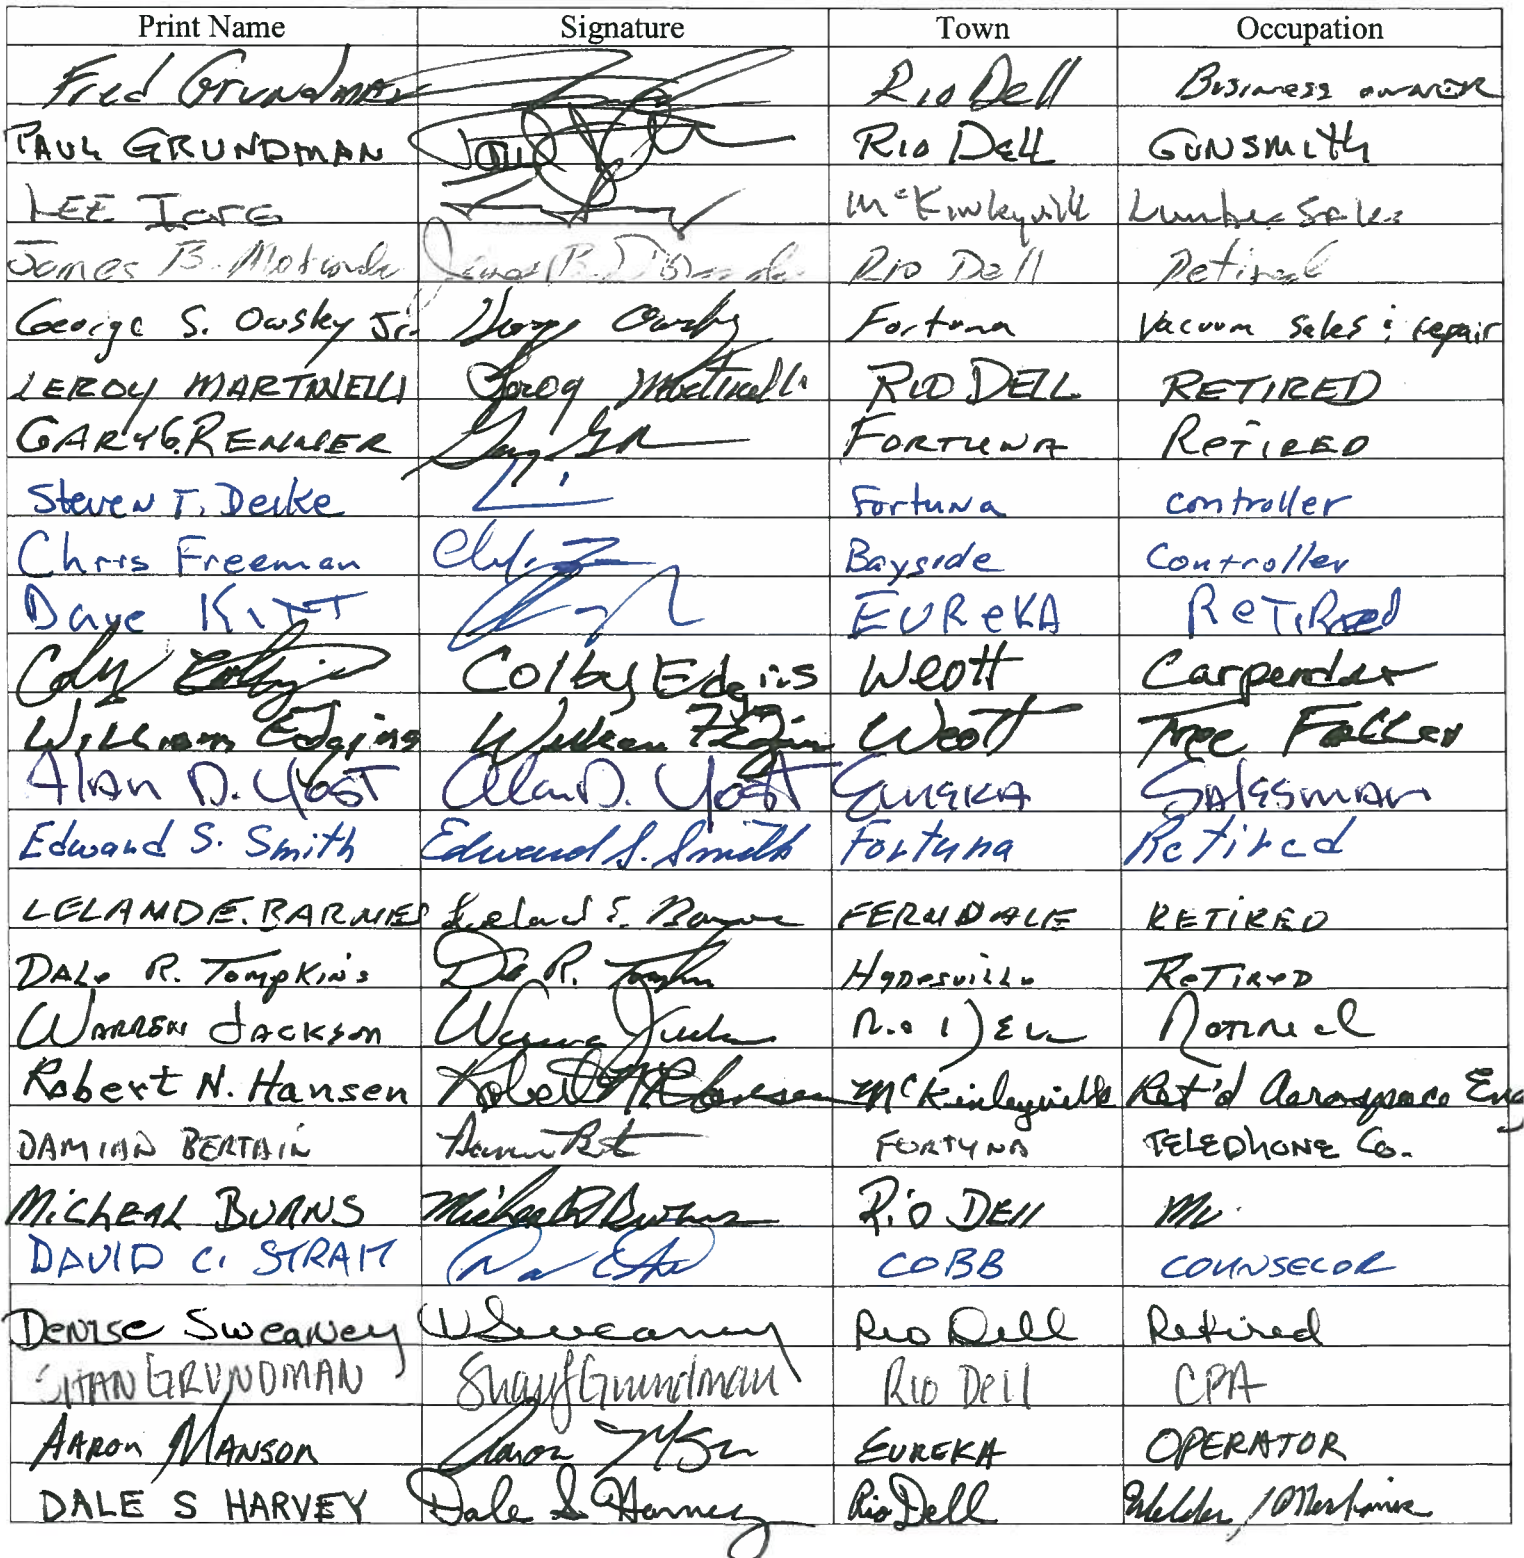 Print Name Signature Town Occupation
Fred Grundman Rio Dell Business owner
PAUL GRUNDMAN Paul Rio Dell GUNSMITH
LEE Iorg McKinleyville Lumber Sales
James B. Rio Dell Retired
George S. Owsky Jr. George Owsky Fortuna Vacuum sales & repair
LEROY MARTINELLI Leroy Martinelli RIO DELL RETIRED
GARY G. RENNER FORTUNA RETIRED
Steven T. Deike Fortuna controller
Chris Freeman Bayside Controller
Dave KITT EUReKA ReTiRed
Colby Edgins Weott Carpender
William Edgins William Edgins Weott Tree Faller
Alan D. YOST Alan D. Yost EUREKA SALESMAN
Edward S. Smith Edward S. Smith Fortuna Retired
LELAND E. BARNES Leland E. Barnes FERNDALE RETIRED
DALe R. TompKins Dale R. Tompkins Hydesville ReTireD
WARREN JACKSON Warren Jackson Rio DELL Retired
Robert N. Hansen Robert N. Hansen McKinleyville Ret'd Aerospace Eng
DAMIAN BERTAIN FORTUNA TELEPHONE Co.
MICHEAL BURNS Micheal Burns Rio DEll
DAVID C. STRAIT COBB COUNSELOR
DENISE Sweaney D Sweaney Rio Dell Retired
SHAN GRUNDMAN Grundman Rio Dell CPA
AARON MANSON Aaron EUREKA OPERATOR
DALE S HARVEY Dale S Harvey Rio Dell Welder / Machinist